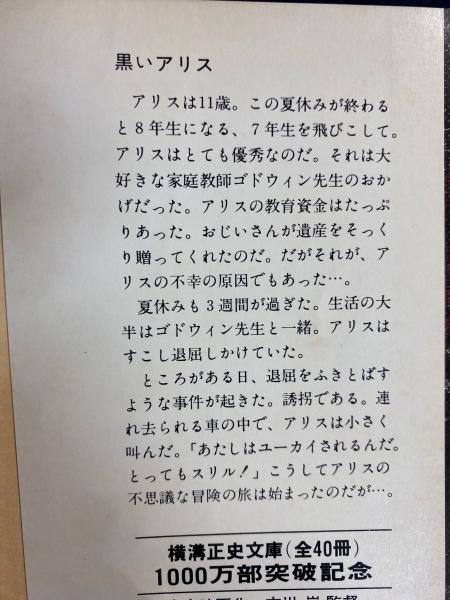 黒いアリス
アリスは11歳。この夏休みが終わる
と8年生になる、7年生を飛びこして。
アリスはとても優秀なのだ。それは大
好きな家庭教師ゴドウィン先生のおか
げだった。アリスの教育資金はたっぷ
りあった。おじいさんが遺産をそっく
り贈ってくれたのだ。だがそれが、ア
リスの不幸の原因でもあった…。
夏休みも3週間が過ぎた。生活の大
半はゴドウィン先生と一緒。アリスは
すこし退屈しかけていた。
ところがある日、退屈をふきとばす
ような事件が起きた。誘拐である。連
れ去られる車の中で、アリスは小さく
叫んだ。「あたしはユーカイされるんだ。
とってもスリル!」こうしてアリスの
不思議な冒険の旅は始まったのだが…。
横溝正史文庫(全40冊)
1000万部突破記念